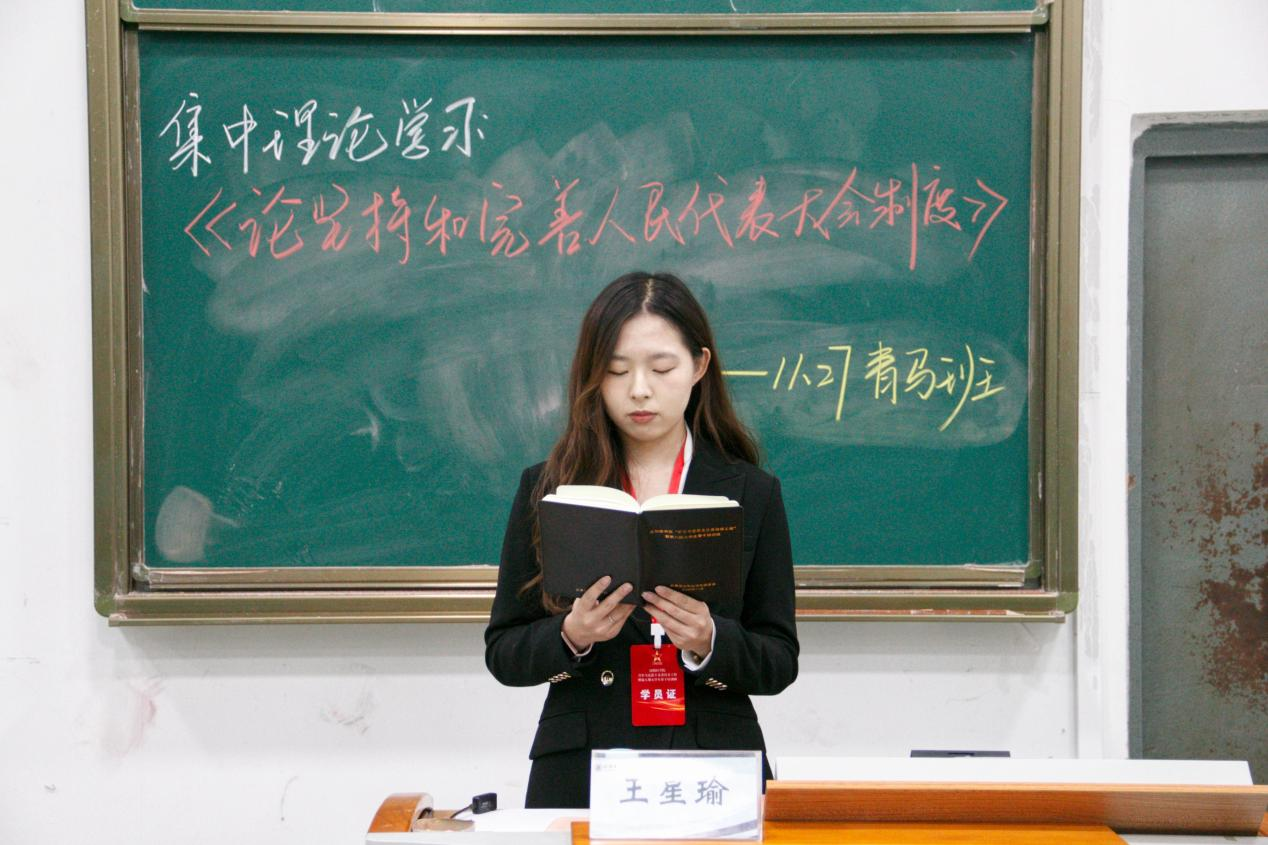 集中理论学习
《论坚持和完善人民代表大会制度》
—11.27 青马班
学员证
王星瑜